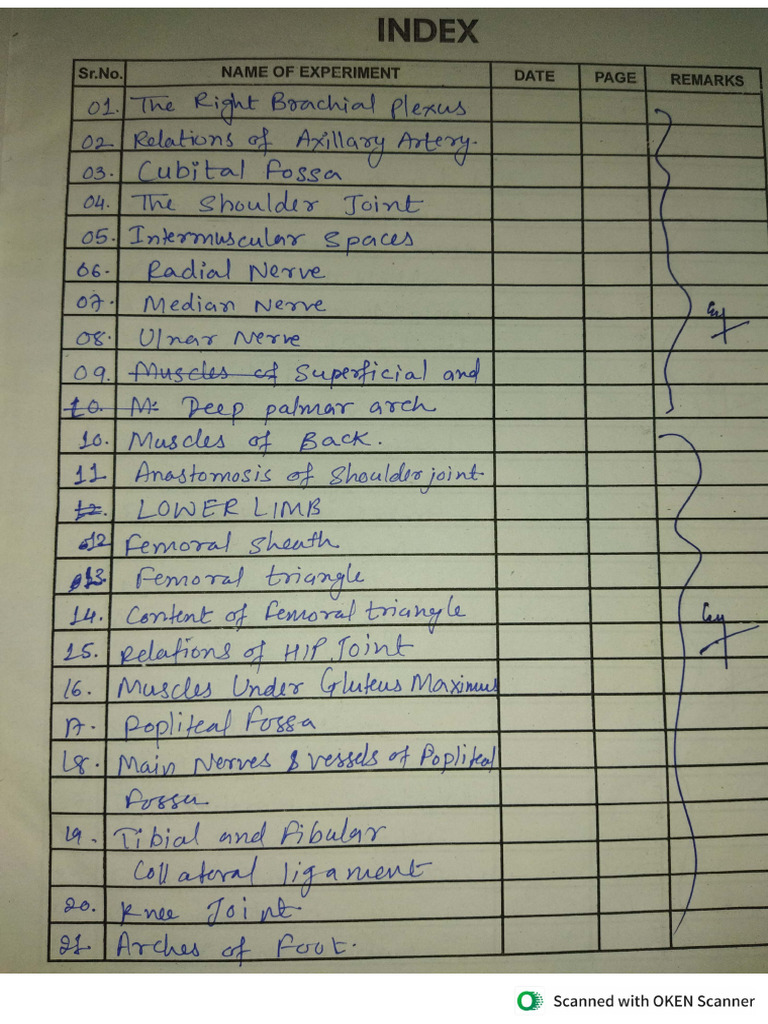 INDEX
Sr.No. NAME OF EXPERIMENT DATE PAGE REMARKS
01. The Right Brachial Plexus
02 Relations of Axillary Artery.
03. Cubital Fossa
04. The Shoulder Joint
05. Intermuscular Spaces
06. Radial Nerve
07. Median Nerve
08. Ulnar Nerve
09. Muscles of Superficial and
10. M. Deep palmar arch
10. Muscles of Back.
11 Anastomosis of Shoulder joint
12. LOWER LIMB
12 Femoral Sheath
13 Femoral triangle
14. Content of Femoral triangle
15. Relations of HIP Joint
16. Muscles Under Gluteus Maximus
17. Popliteal Fossa
18. Main Nerves & vessels of Popliteal
Fossa
19. Tibial and Fibular
Collateral ligament
20. Knee Joint.
21 Arches of Foot.
Scanned with OKEN Scanner